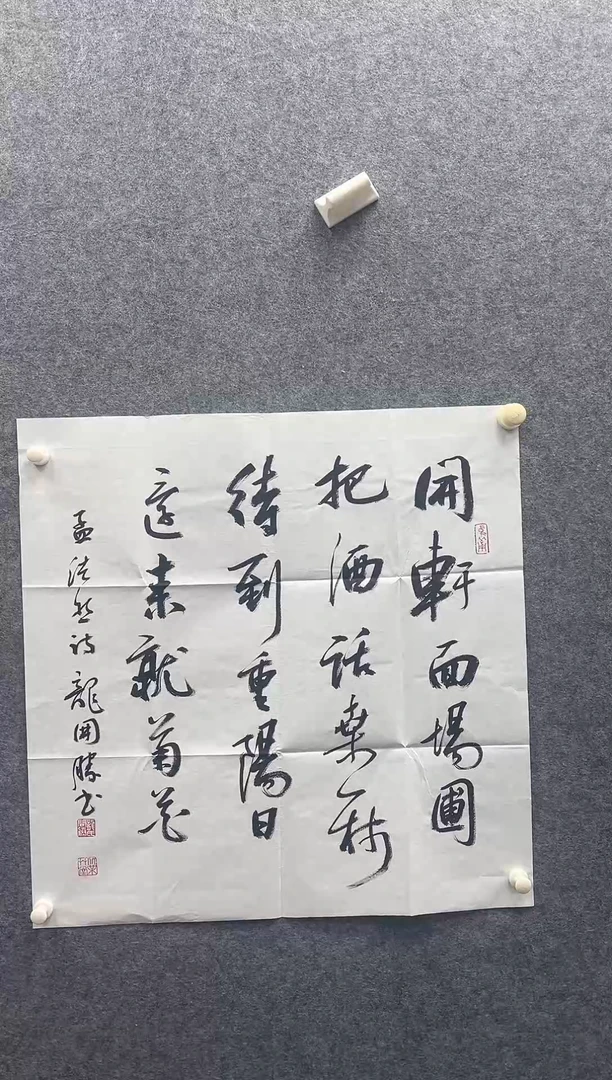 開軒面場圃
把酒話桑麻
待到重陽日
還来就菊花
孟浩然诗 龍開勝书